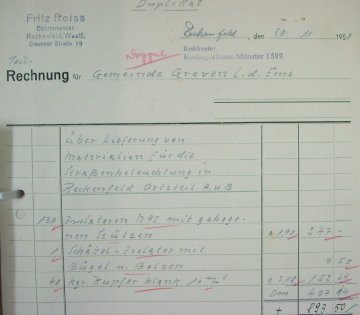 Duplikat
Fritz Reiss
Elektromeister
Reckenfeld/Westf.
Grevener Straße 19
Reckenfeld, den 20. 11. 1951
Bankkonto:
Kreissparkasse Münster 1599
Doppel
Teil-
Rechnung für Gemeinde Greven i. d. Ems
über Lieferung von
Materialien für die
Straßenbeleuchtung in
Reckenfeld Ortsteil A u. B
130 Isolatoren N95 mit geboge-
nen Stützen a 1.90 247 -
1 Schäkel-Isolator mit
Bügel u. Bolzen 50
40 kgr. Kupfer blank 10 mm²
DM
+ 50